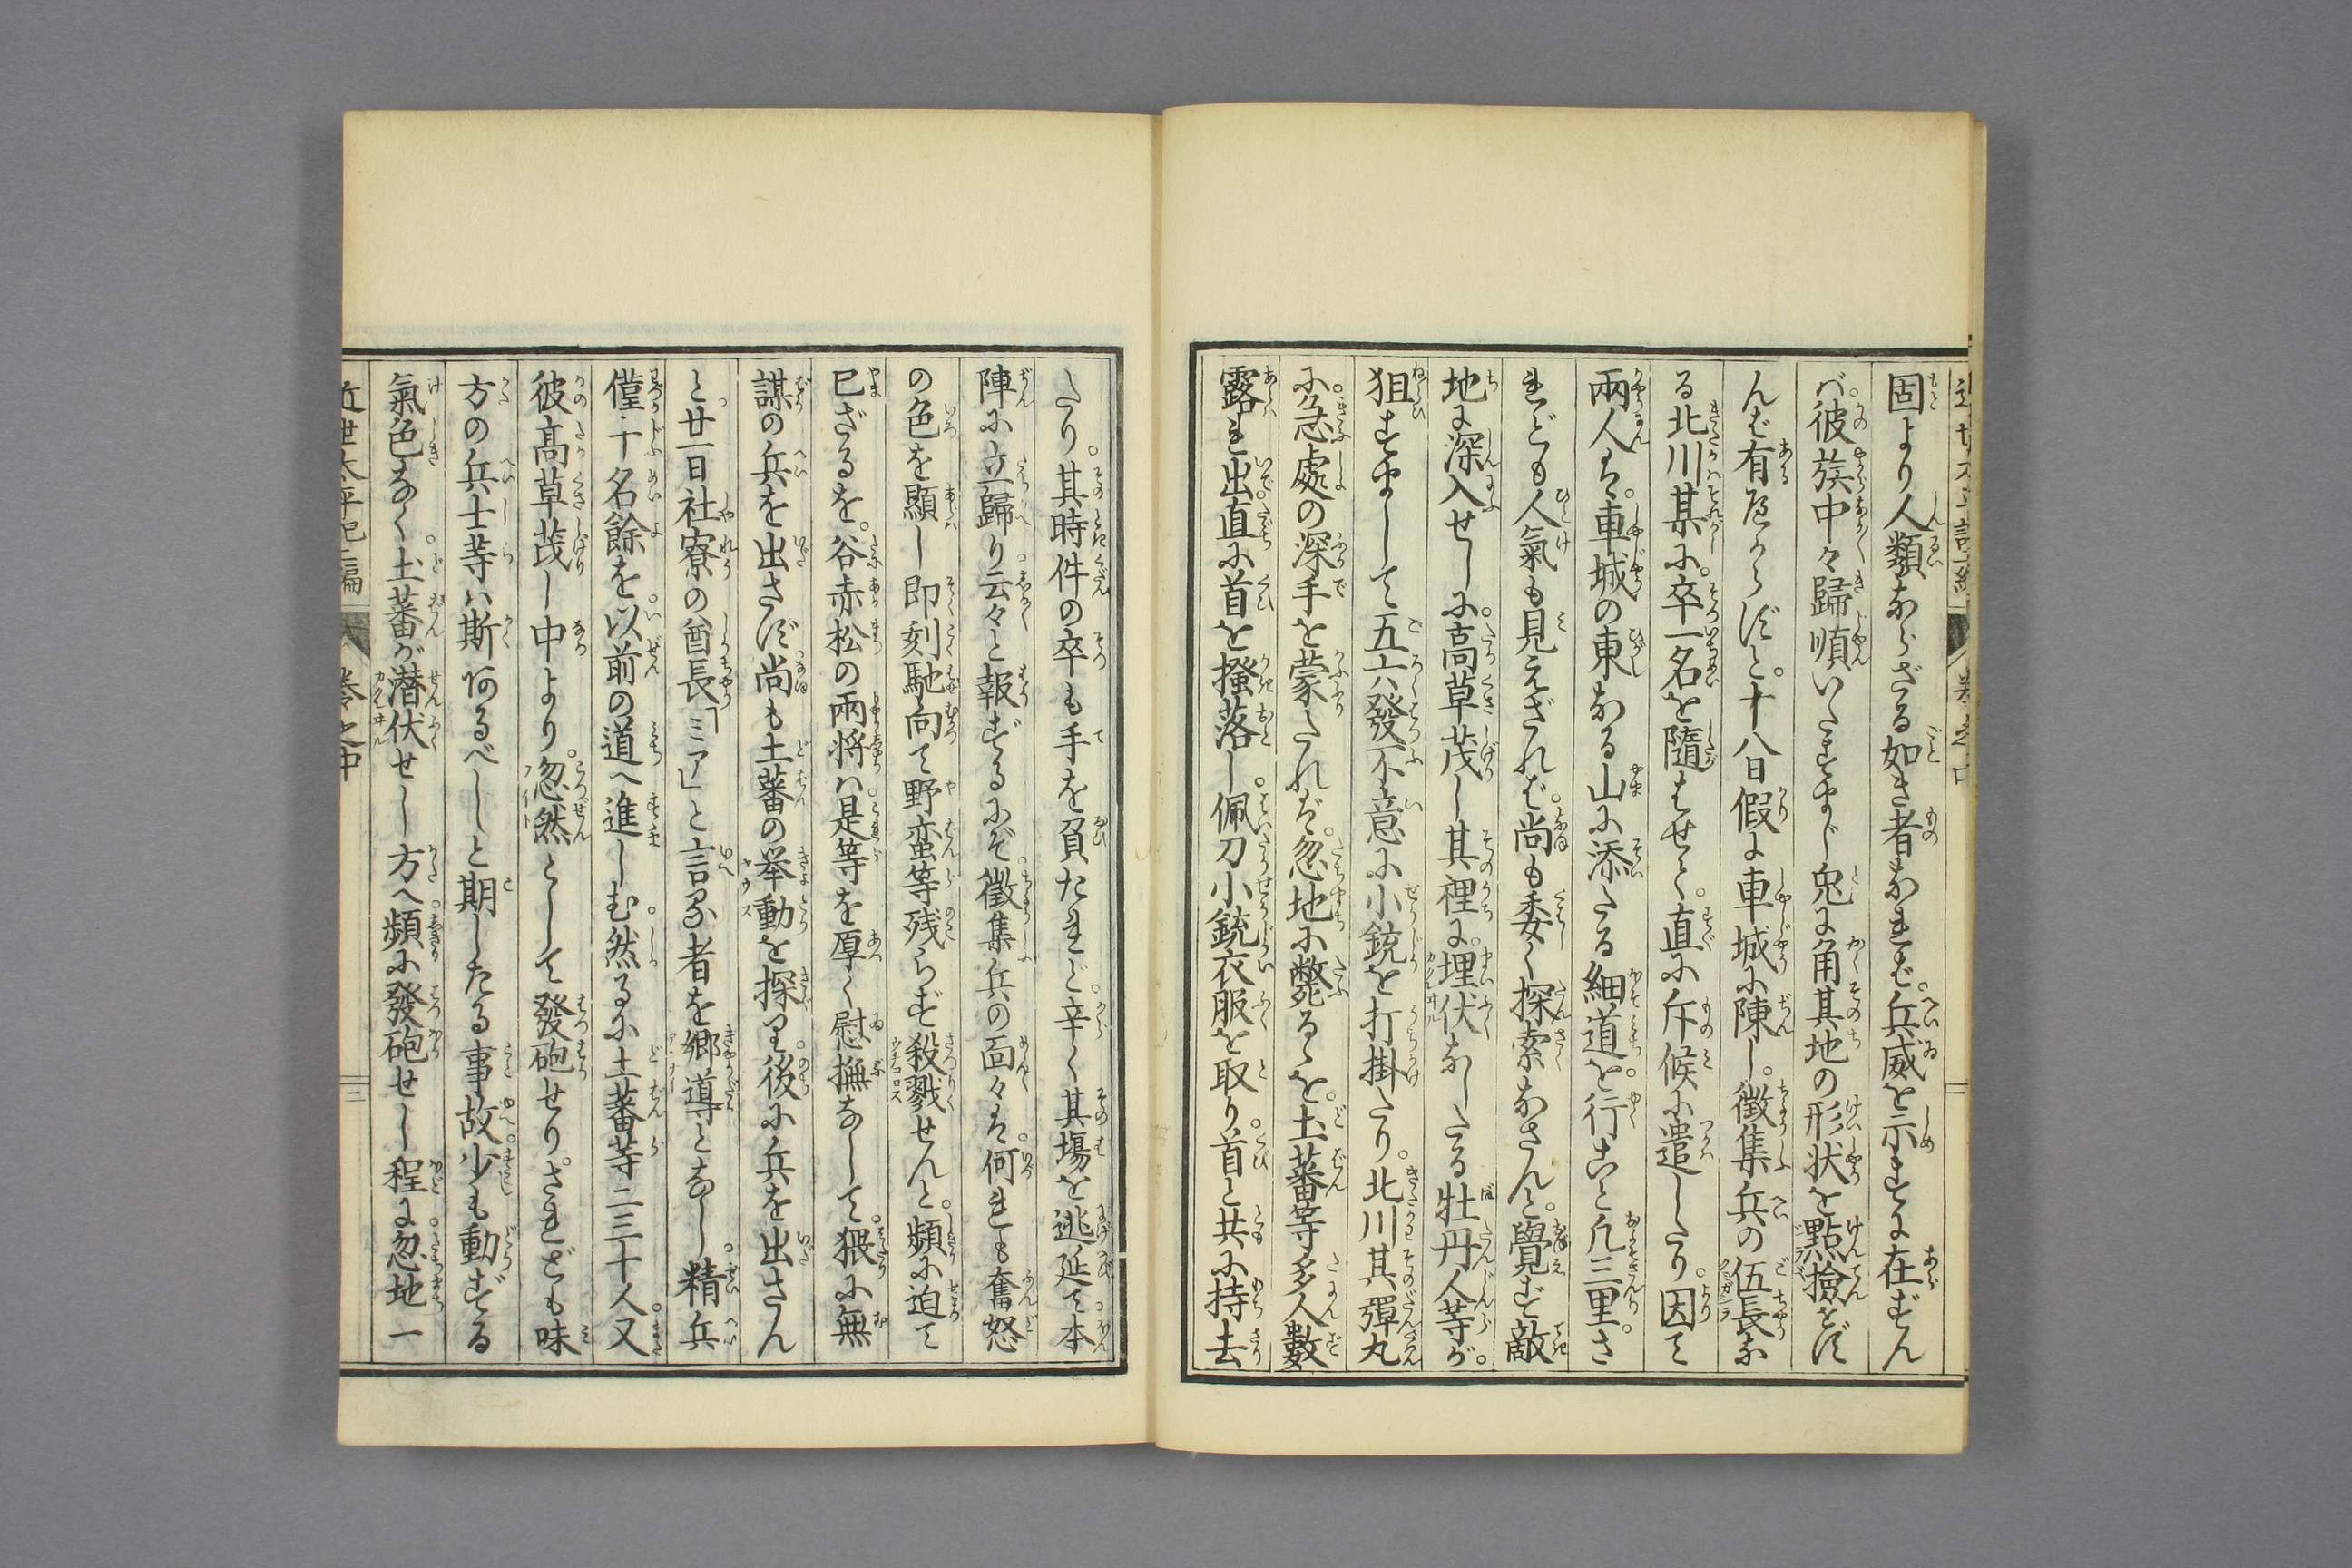 固より人類ならざる如き者なれば。兵威を示すに在ずん
ば。彼族中々歸順いたすまじ兎に角其地の形状を點撿せず
んば有べからずと。十八日假に車城に陳し。徴集兵の伍長な
る北川某に。卒一名を隨はせて。直に斥候に遣したり。因て
兩人は。車城の東なる山に添たる細道を。行こと凡三里。さ
れども人氣も見えざれば。尚も委しく探索なさんと。覺ず敵
地に深入せしに。高草茂し其裡に。埋伏なしたる牡丹人等が。
狙すまして五六發不意に小銃を打掛たり。北川其彈丸
に。急處の深手を蒙たれば。忽地に斃るゝを。土蕃等多人數
露れ出直に首を掻落し。佩刀小銃衣服を取り。首と共に持去
たり。其時件の卒も手を負たれど。辛く其場を逃延て本
陣に立歸り云々と報ずるにぞ。徴集兵の面々は。何れも奮怒
の色を顯し即刻馳向て野蛮等残らず殺戮せんと。頻に迫て
已ざるを。谷赤松の兩将は。是等を厚く慰撫なして。猥に無
謀の兵を出さず尚も土蕃の挙動を探り。後に兵を出さん
と廿一日社寮の酋長「ミア」と言る者を郷導となし。精兵
僅十名餘を。以前の道へ進しむ。然るに土蕃等二三十人又
彼高草茂し中より。忽然として發砲せり。されども味
方の兵士等は斯あるべしと期したる事故。少も動ずる
氣色なく。土蕃が潜伏せし方へ。頻に發砲せし程に。忽地一
近世太平記二編 巻之中 三